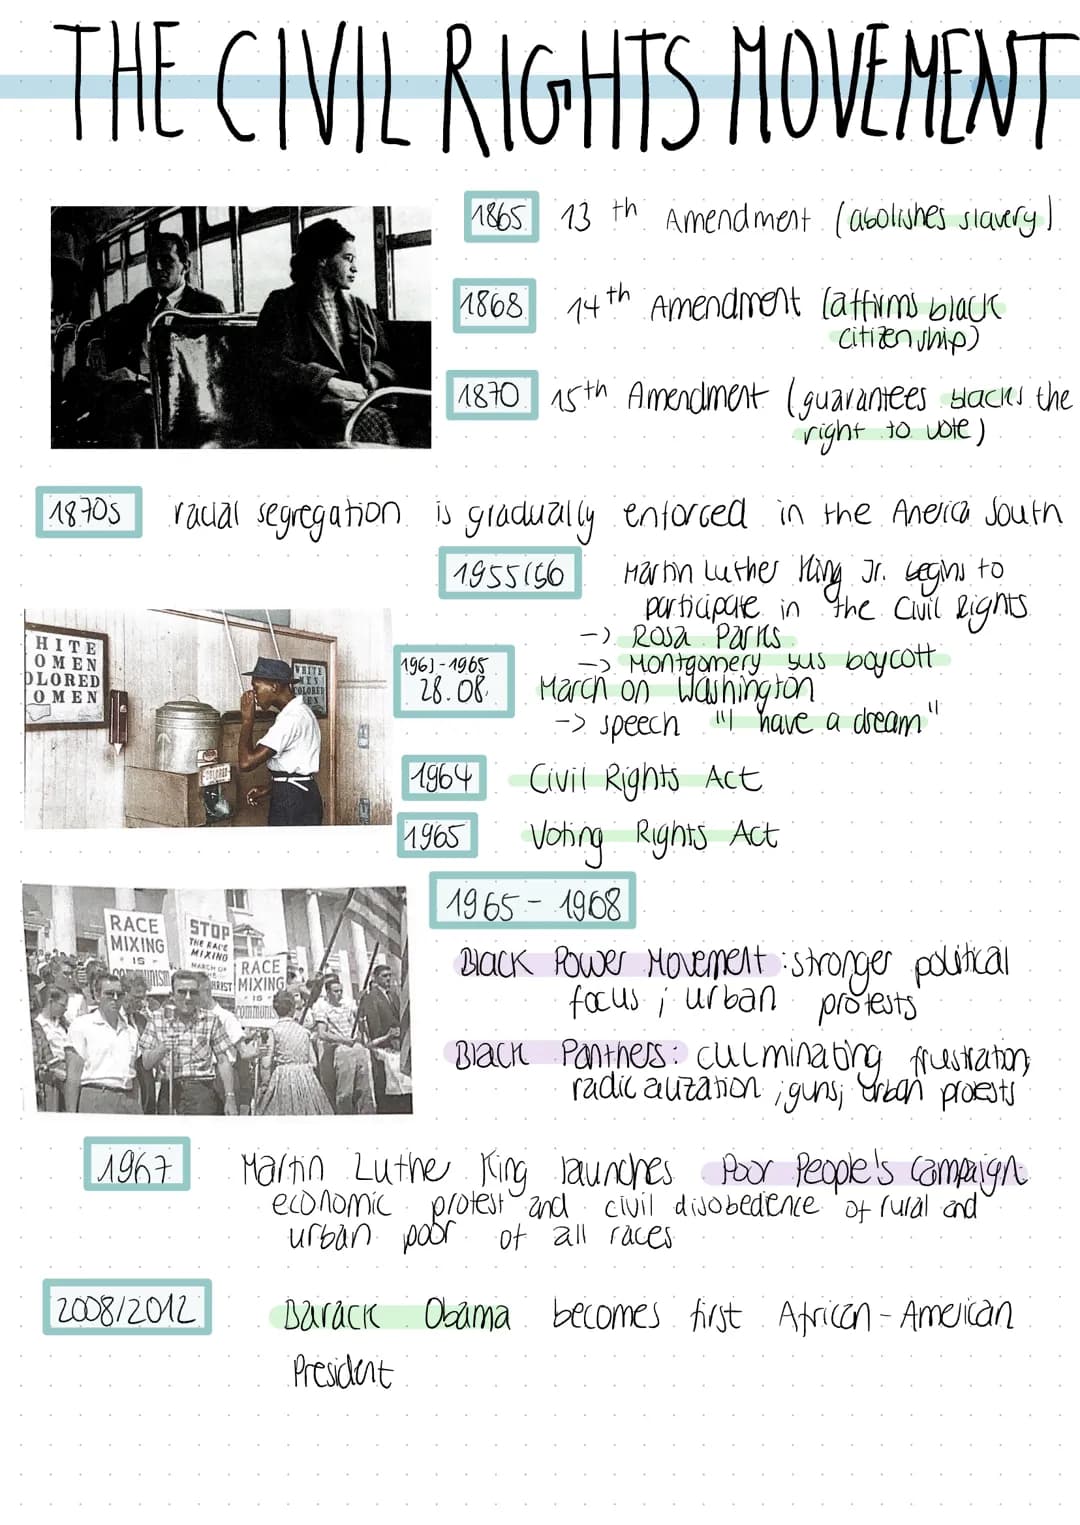 THE CIVIL RIGHTS MOVEMENT
1865 13th Amendment (abolishes slavery)
1868 14th Amendment (affirms black
citizenship)
1870 15th Amendment (guarantees blacks the
right to vote)
1870s racial segregation is gradually enforced in the America South
1955/56 Martin Luther King Jr. begins to
participate in the Civil Rights
-> Rosa Parks
-> Montgomery bus boycott
1963-1965
28.08. March on Washington
-> speech "I have a dream"
HITE
OMEN
OLORED
OMEN
WHITE
MEN
COLORED
COLORED
1964 Civil Rights Act
1965 Voting Rights Act
1965-1968
Black Power Movement: stronger political
focus; urban protests
Black Panthers: culminating frustration;
radicalization; guns; urban protests
RACE
MIXING
IS
COMMUNISM
STOP
THE RACE
MIXING
MARCH OF
RACE
MIXING
IS
COMMUNIS
1967 Martin Luthe King launches Poor People's Campaign:
economic protest and civil disobedience of rural and
urban poor of all races
2008/2012 Barack Obama becomes first African-American
President